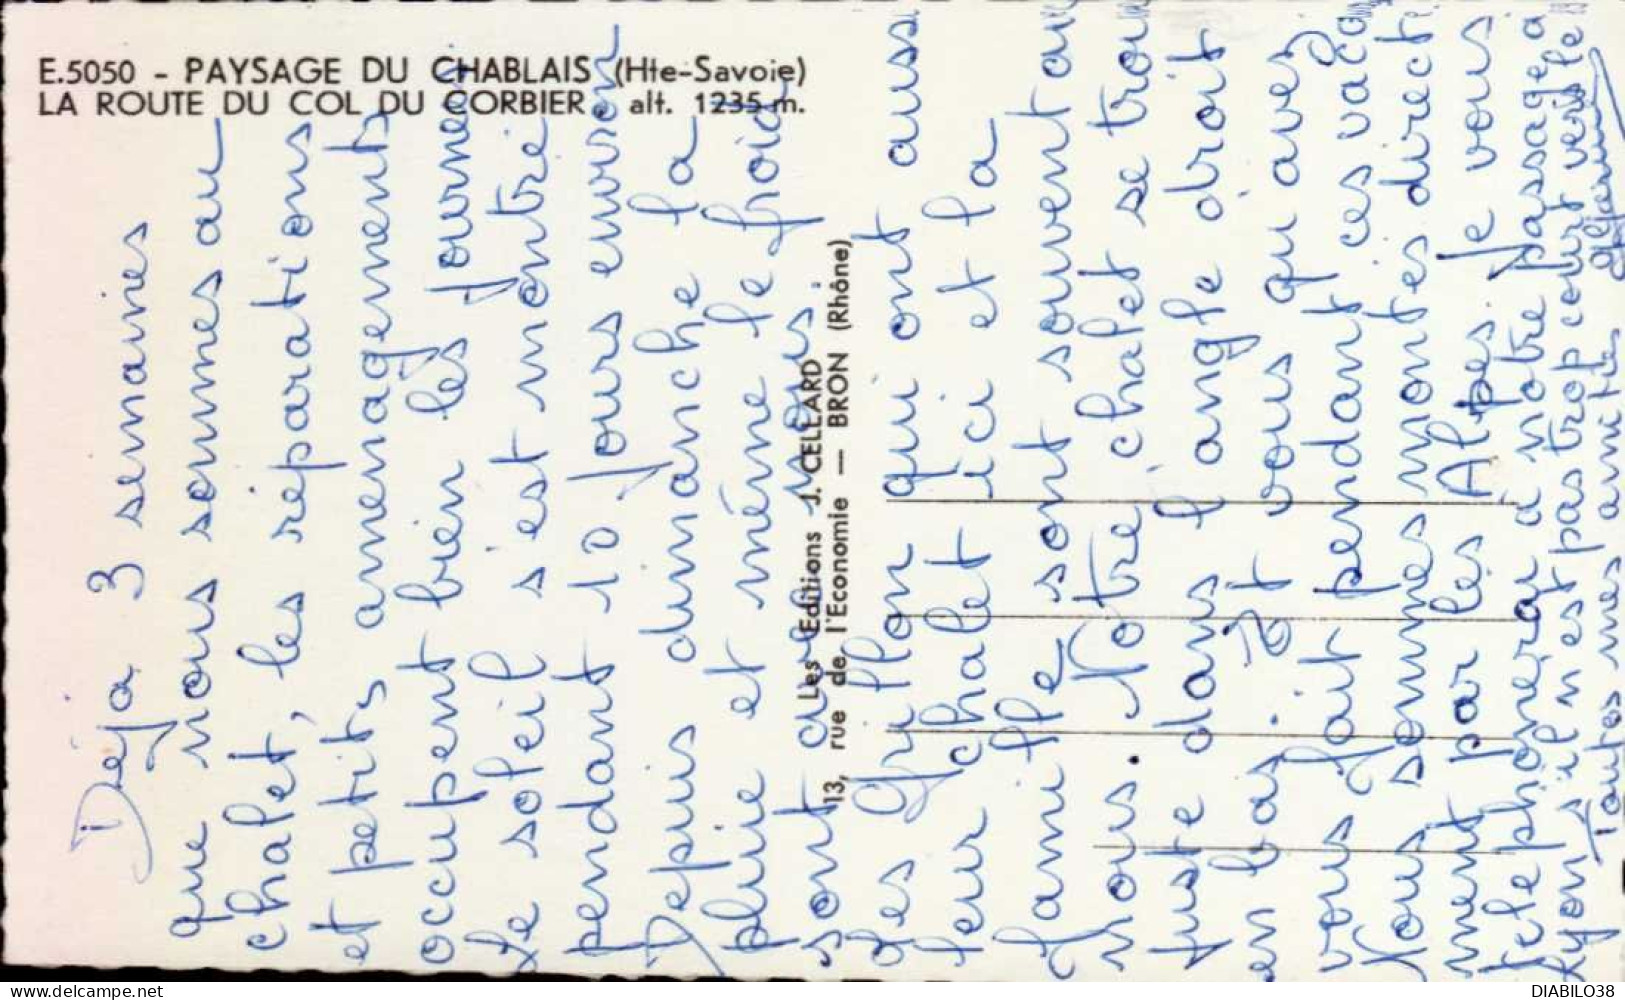 E.5050 - PAYSAGE DU CHABLAIS (Hte-Savoie)
LA ROUTE DU COL DU CORBIER, alt. 1235 m.
Les Editions J. CELLARD
13, rue de l'Economie — BRON (Rhône)
Déja 3 semaines
que nous sommes au
chalet, les réparations
et petits amenagements
occupent bien les journées
Le soleil s'est montré
pendant 10 jours environ
Depuis dimanche la
pluie et même le froid
sont avec nous.
Les Grillon qui ont aussi
leur chalet ici et la
famille sont souvent avec
nous. Notre chalet se trouve
juste dans l'angle droit
en bas. Et vous qu'avez
vous fait pendant ces vacances
Nous sommes montés directe
ment par les Alpes. Je vous
telephonerai à notre passage à
Lyon s'il n'est pas trop court vers le
Toutes mes amitiés
DIABILO38